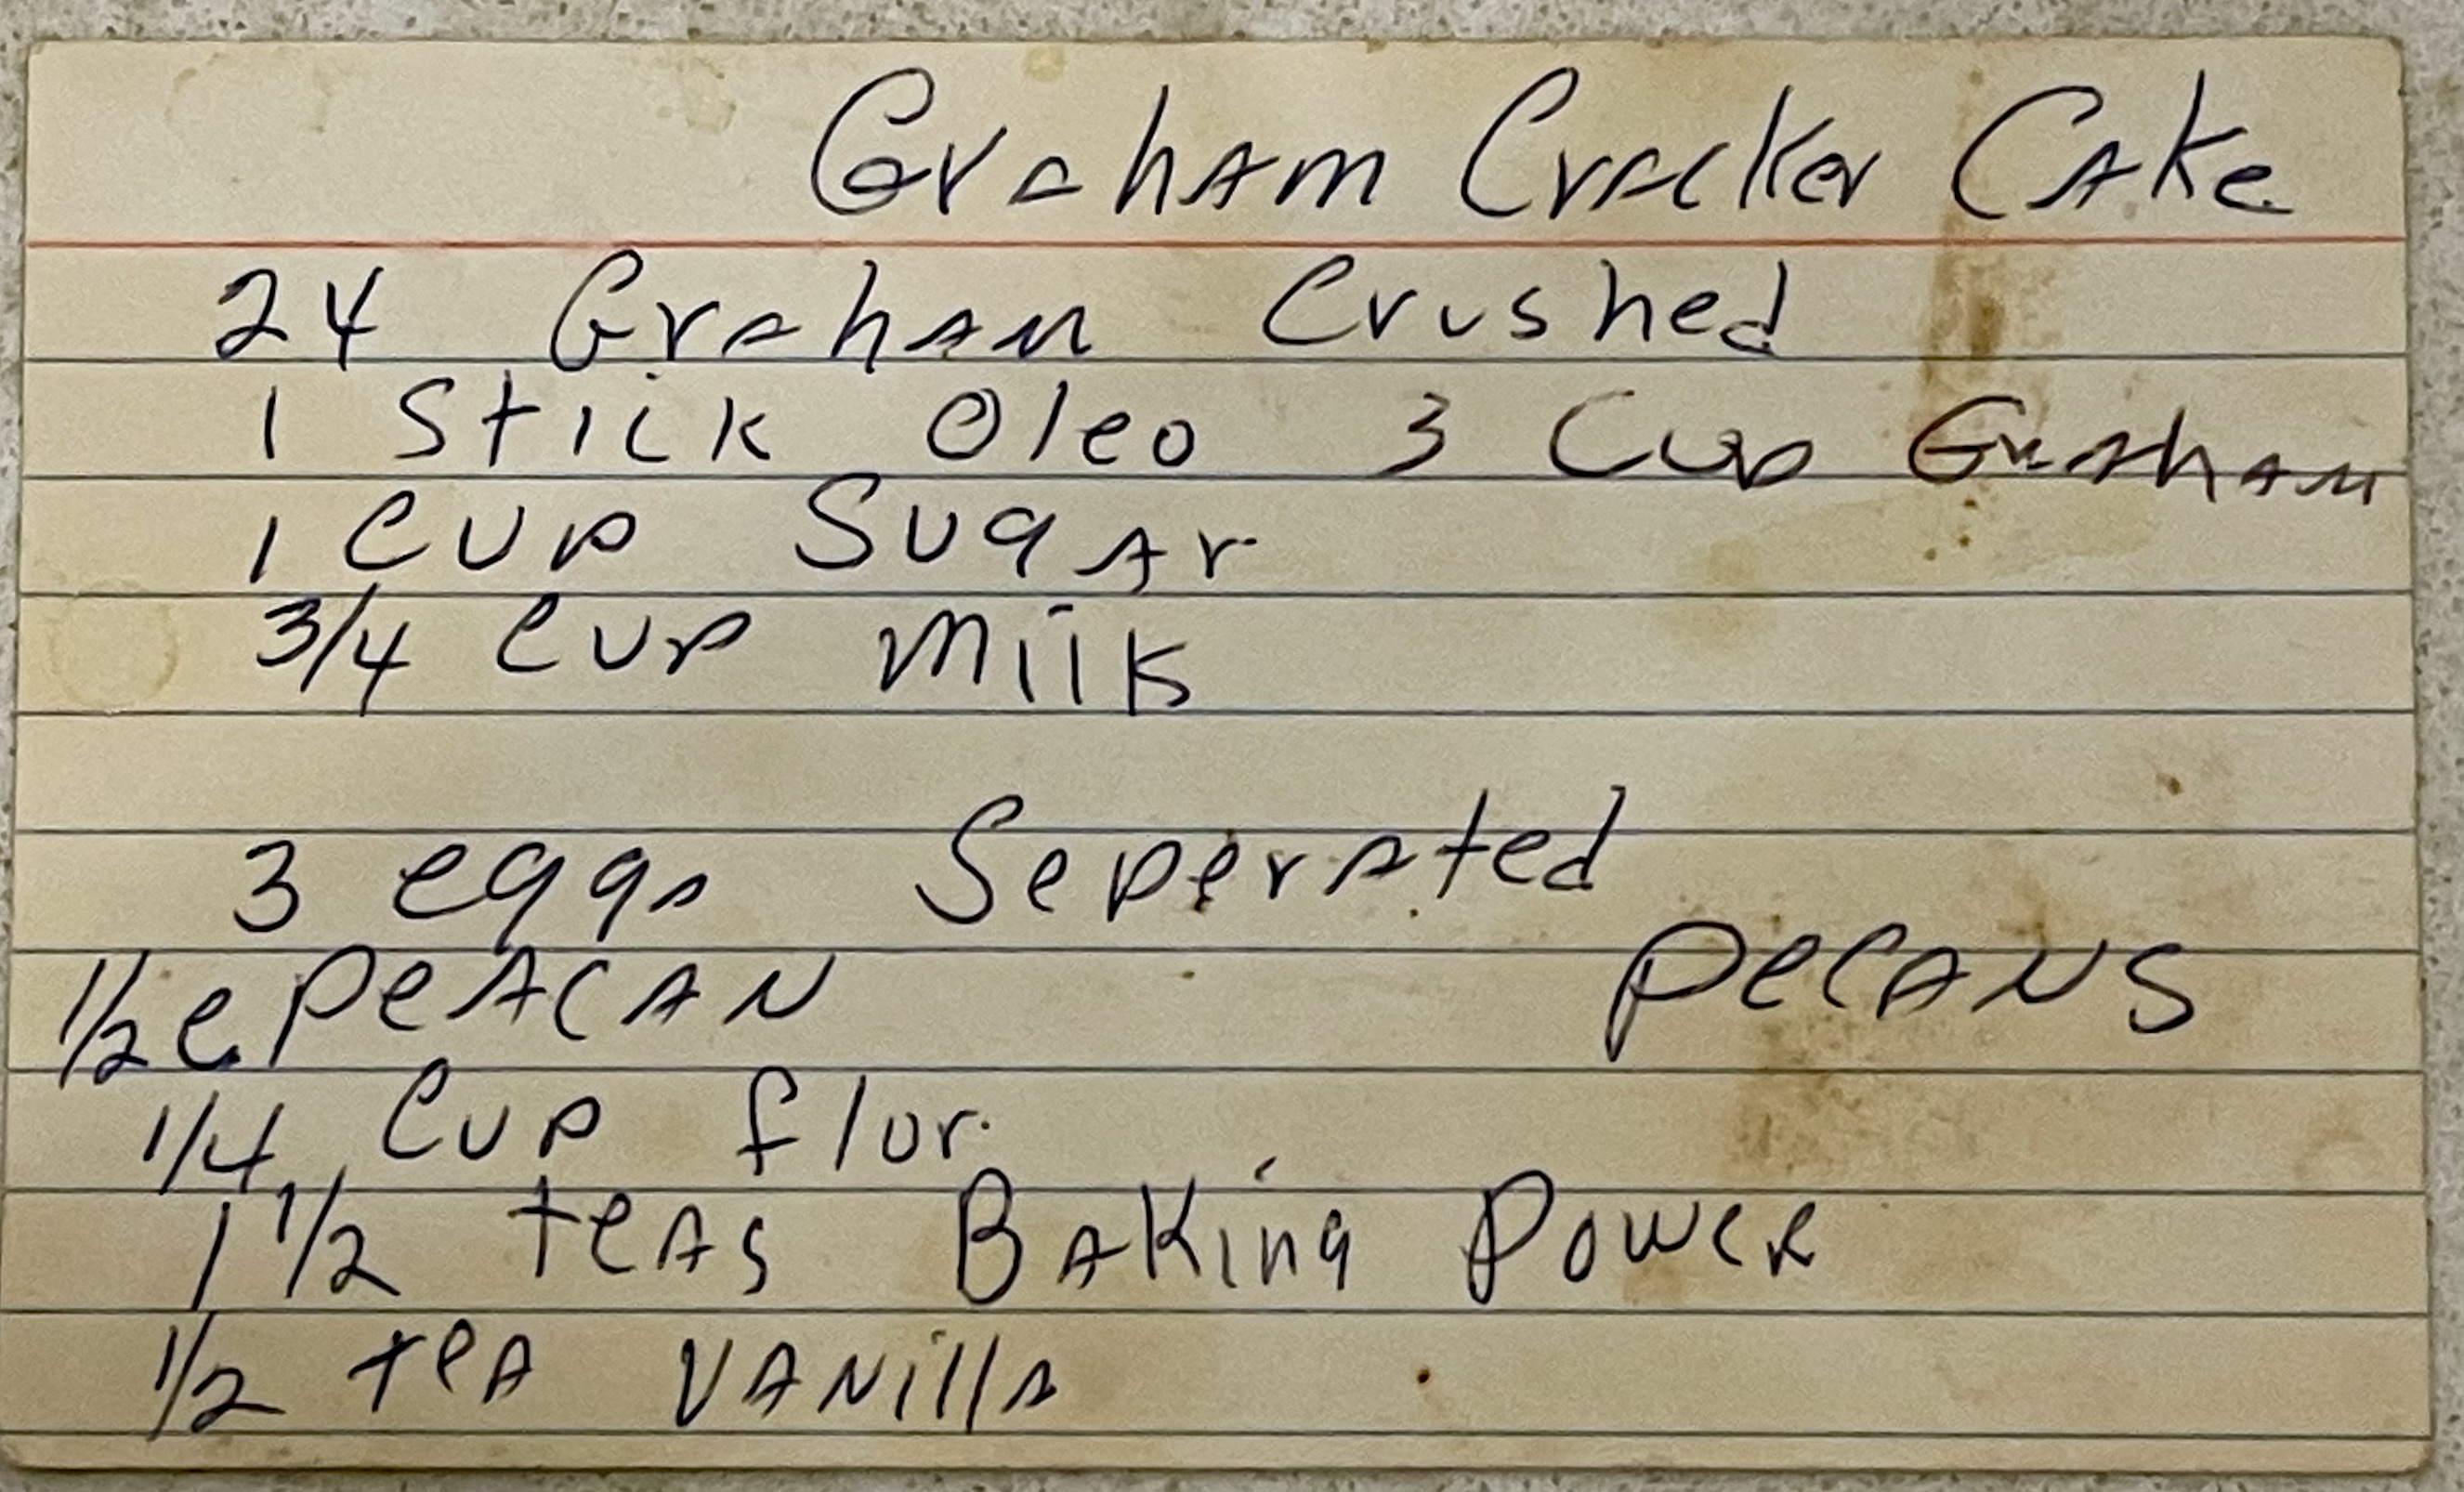 Graham Cracker Cake
24 Graham Crushed
1 Stick Oleo 3 Cup Graham
1 Cup Sugar
3/4 Cup Milk
3 eggs Seperated
1/2 c PeACAN PeCANS
1/4 Cup flur
1 1/2 teAs BAKing Power
1/2 teA VANillA